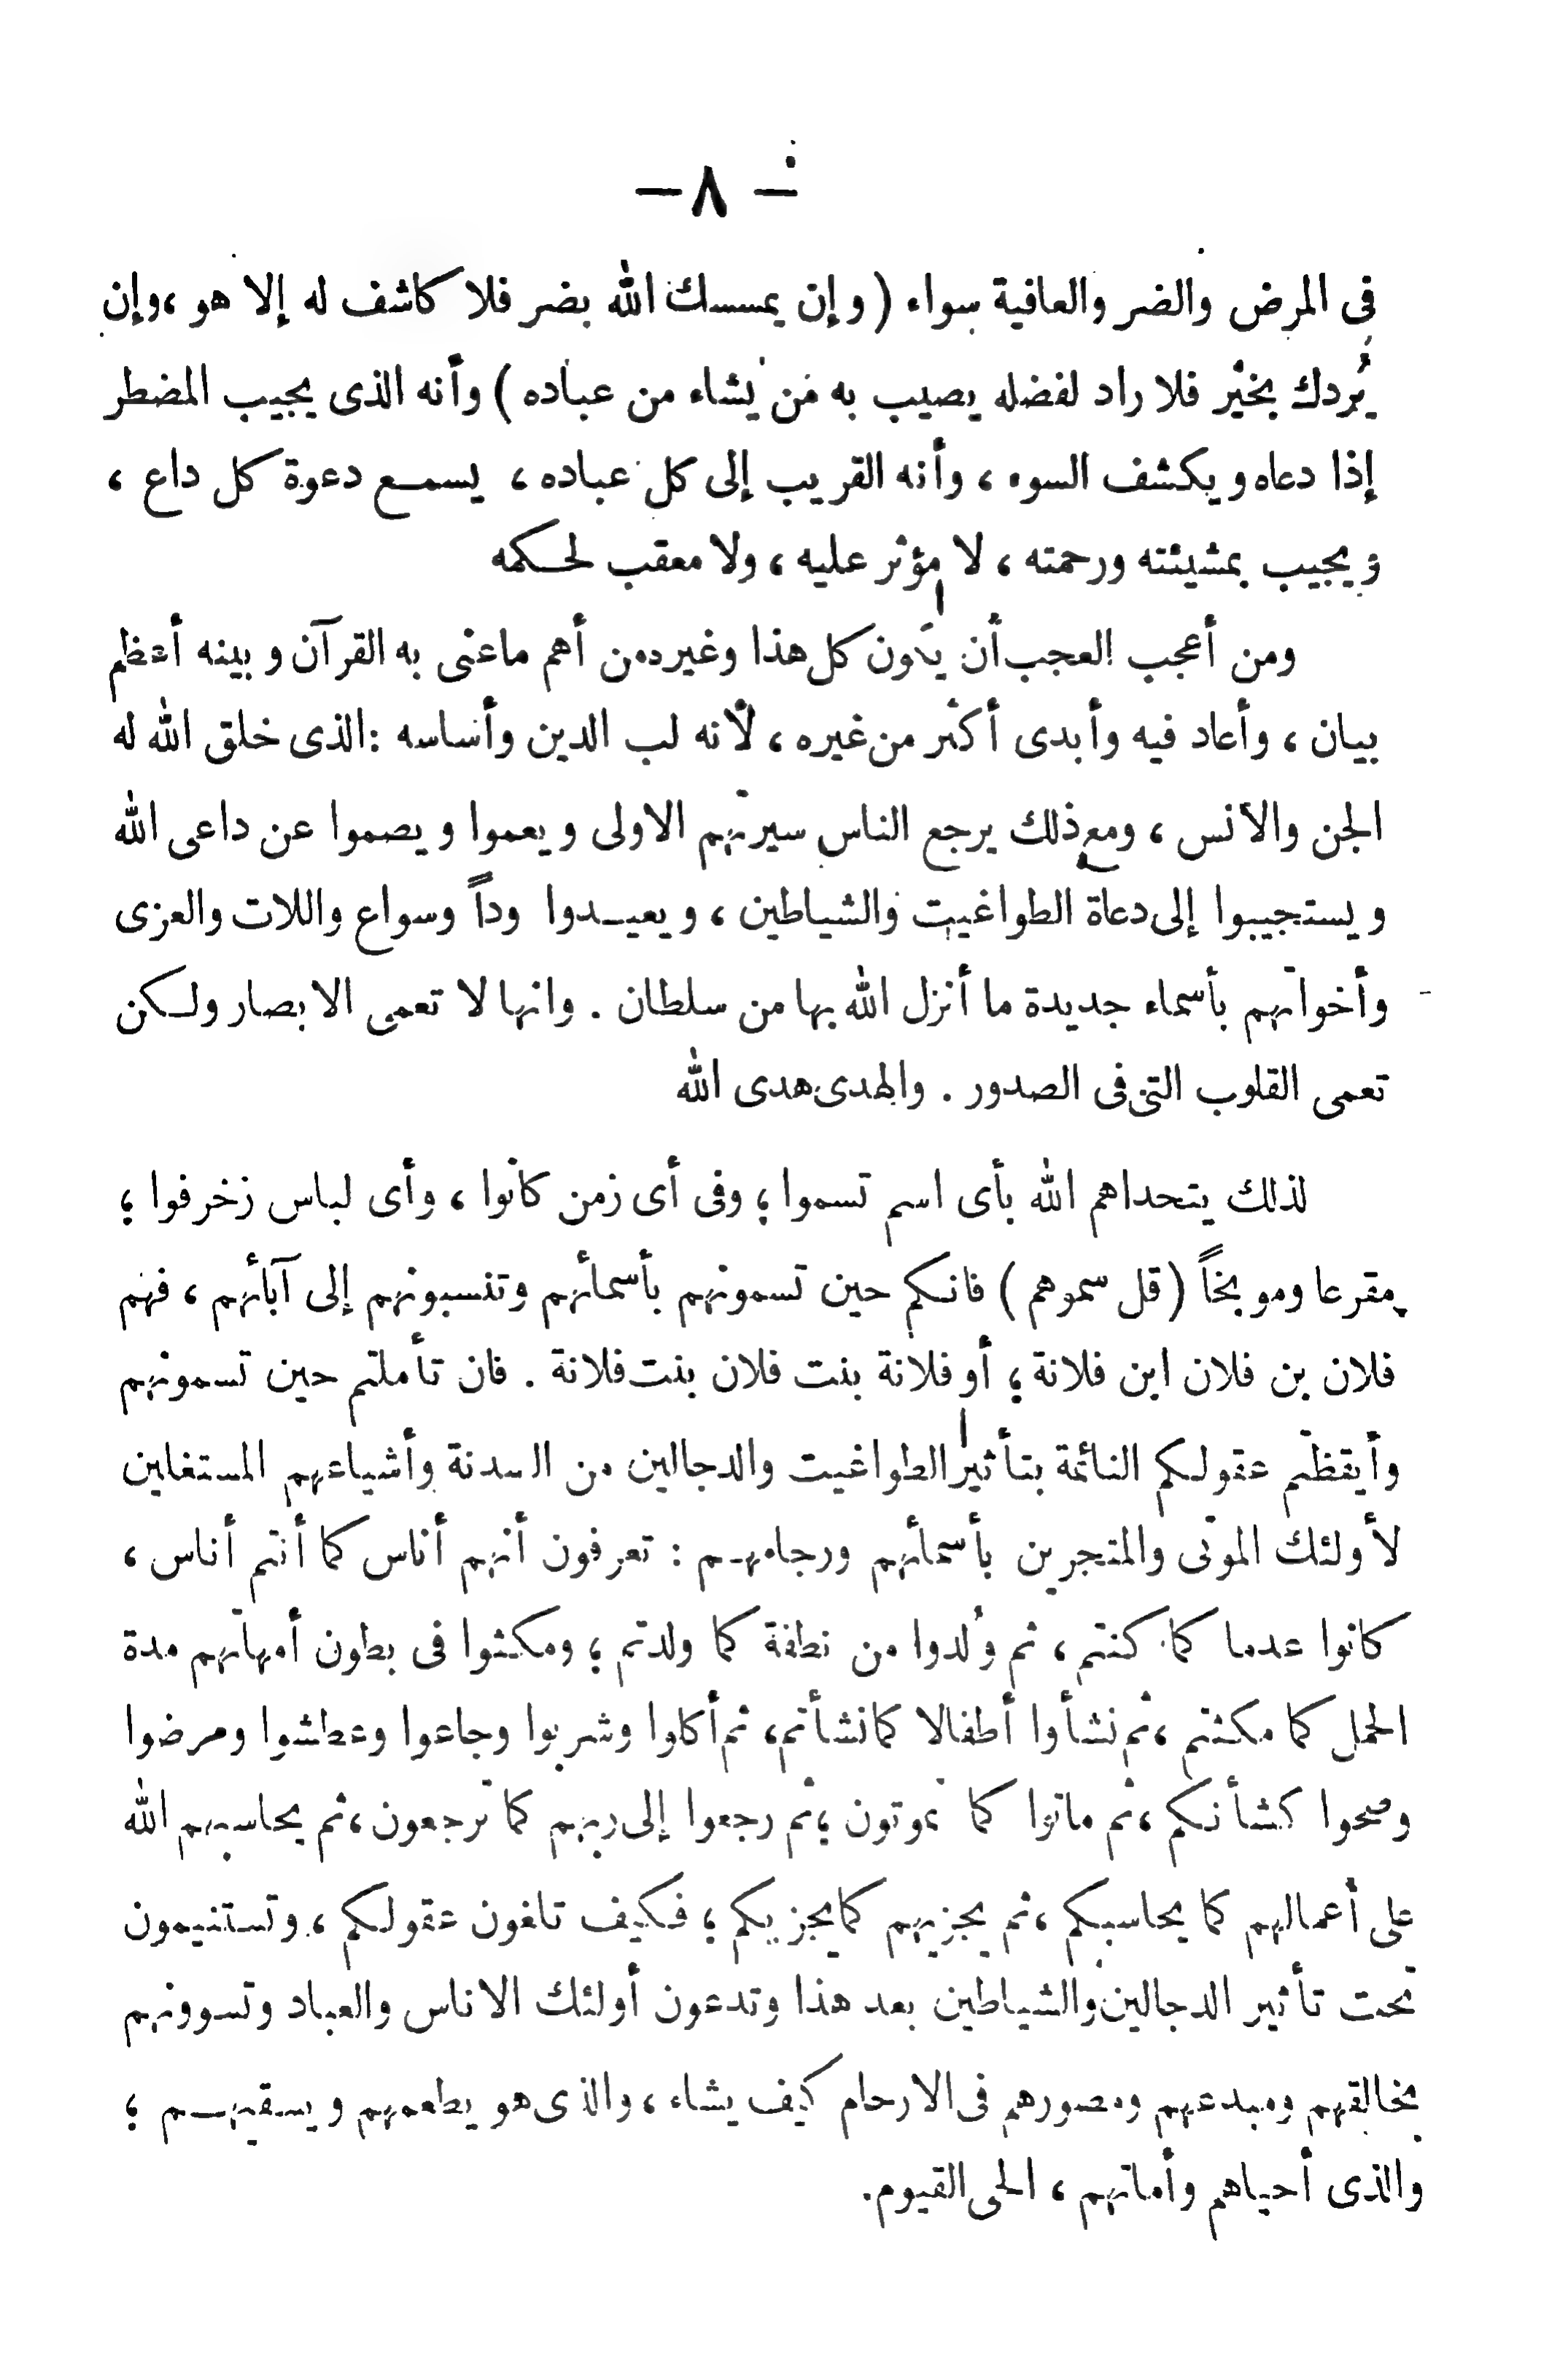 — ٨ —
فى المرض والضر والعافية سواء ( وإن يمسسك الله بضر فلا كاشف له إلا هو ،وإن
يُردك بخيْر فلا راد لفضله يصيب به مَن يشاء من عباده ) وأنه الذى يجيب المضطر
إذا دعاه ويكشف السوء ، وأنه القريب إلى كل عباده ، يسمـع دعوة كل داع ،
ويجيب بمشيئته ورحمته ، لا مؤثر عليه ، ولا معقب لحـكمه
ومن أعجب العجب أن يكون كل هذا وغيره من أهم ماعنى به القرآن وبينه أعظم
بيان ، وأعاد فيه وأبدى أكثر من غيره ، لأنه لب الدين وأساسه :الذى خلق الله له
الجن والانس ، ومع ذلك يرجع الناس سيرتهم الاولى ويعموا ويصموا عن داعى الله
ويستجيبوا إلى دعاة الطواغيت والشياطين ، ويعيـدوا وداً وسواع واللات والعزى
وأخواتهم بأسماء جديدة ما أنزل الله بها من سلطان . وانها لا تعمى الابصار ولـكن
تعمى القلوب التى فى الصدور . والهدى هدى الله
لذلك يتحداهم الله بأى اسم تسموا ؛ وفى أى زمن كانوا ، وأى لباس زخرفوا ؛
مقرعا وموبخاً ( قل سموهم ) فانـكم حين تسمونهم بأسمائهم وتنسبونهم إلى آبائهم ، فهم
فلان بن فلان ابن فلانة ؛ أو فلانة بنت فلان بنت فلانة . فان تأملتم حين تسمونهم
وأيقظتم عقولـكم النائمة بتأثير الطواغيت والدجالين من السدنة وأشياعهم المستغلين
لأولئك الموتى والمتجرين بأسمائهم ورجامهـم : تعرفون أنهم أناس كما أنتم أناس ،
كانوا عدما كما كنتم ، ثم وُلدوا من نطفة كما ولدتم ؛ ومكثوا فى بطون أمهاتهم مدة
الحمل كما مكثتم ،ثم نشأوا أطفالا كما نشأتم، ثم أكلوا وشربوا وجاعوا وعطشوا ومرضوا
وصحوا كشأنكم ،ثم ماتوا كما تموتون ؛ثم رجعوا إلى ربهم كما ترجعون ،ثم يحاسبهم الله
على أعمالهم كما يحاسبكم ،ثم يجزيهم كما يجزيكم ؛ فـكيف تلغون عقولـكم ، وتستنيمون
تحت تأثير الدجالين والشياطين بعد هذا وتدعون أولئك الاناس والعباد وتسوونهم
بخالقهم ومبدعهم ومصورهم فى الارحام كيف يشاء ، والذى هو يطعمهم ويسقيهـم ؛
والذى أحياهم وأماتهم ، الحى القيوم.